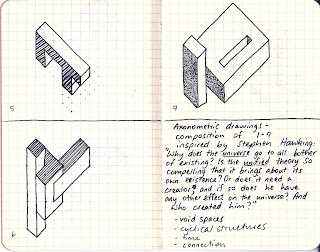 5
7
6
Axonometric drawings -
composition of 1-9
inspired by Stephen Hawking:
"Why does the universe go to all bother
of existing? Is the unified theory so
compelling that it brings about its
own existence? Or does it need a
creator? and if so does he have
any other effect on the universe? And
who created him?"
- void spaces
- cyclical structures
- time
- connection